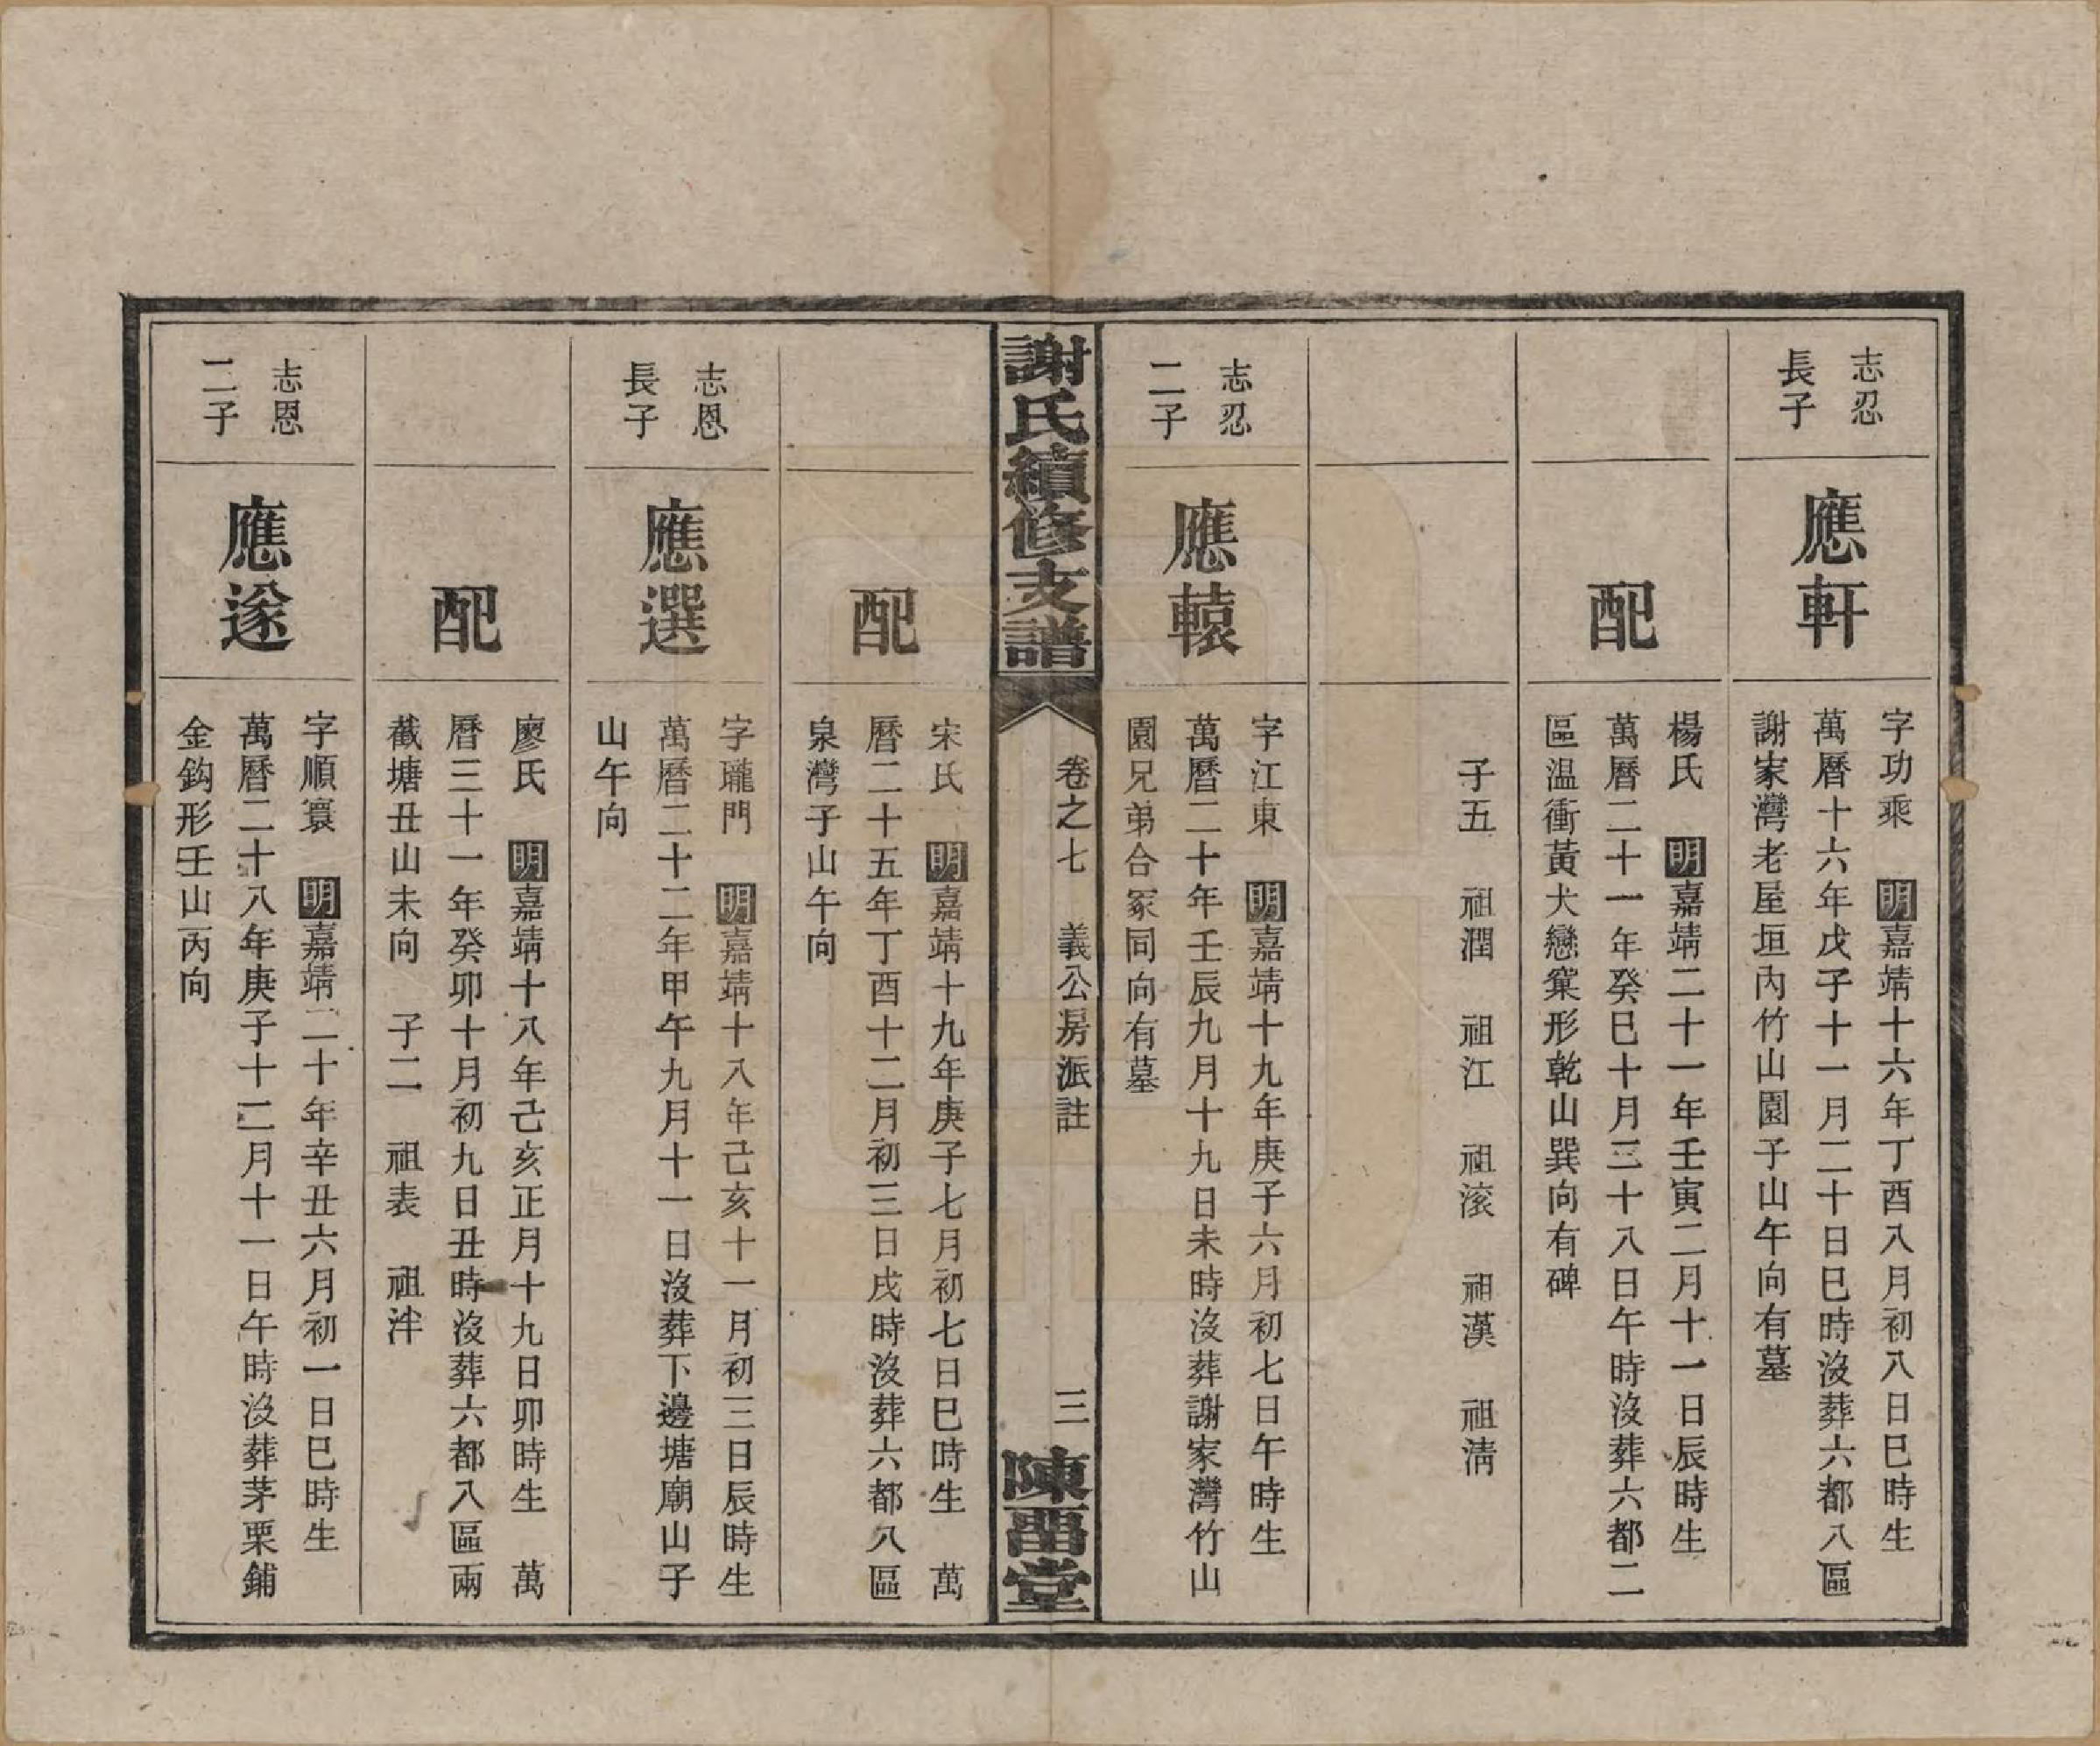 志忍
長子
應軒
字功乘　明嘉靖十六年丁酉八月初八日巳時生
萬曆十六年戊子十一月二十日巳時沒葬六都八區
謝家灣老屋垣內竹山園子山午向有墓
配
楊氏　明嘉靖二十一年壬寅二月十一日辰時生
萬曆二十一年癸巳十月三十八日午時沒葬六都二
區温衝黃犬戀窠形乾山巽向有碑
子五　祖潤　祖江　祖滚　祖漢　祖淸
志忍
二子
應轅
字江東　明嘉靖十九年庚子六月初七日午時生
萬曆二十年壬辰九月十九日未時沒葬謝家灣竹山
園兄弟合冢同向有墓
謝氏續修支譜
卷之七　義公房派註
三
陳畱堂
配
宋氏　明嘉靖十九年庚子七月初七日巳時生　萬
曆二十五年丁酉十二月初三日戌時沒葬六都八區
泉灣子山午向
志恩
長子
應選
字瓏門　明嘉靖十八年己亥十一月初三日辰時生
萬曆二十二年甲午九月十一日沒葬下邊塘廟山子
山午向
配
廖氏　明嘉靖十八年己亥正月十九日卯時生　萬
曆三十一年癸卯十月初九日丑時沒葬六都八區兩
截塘丑山未向　子二　祖表　祖泮
志恩
二子
應遂
字順寰　明嘉靖二十年辛丑六月初一日巳時生
萬曆二十八年庚子十二月十一日午時沒葬茅栗鋪
金鈎形壬山丙向